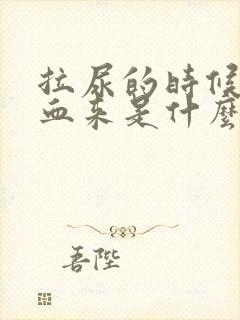 拉尿的時候
血来是什麼
善陛